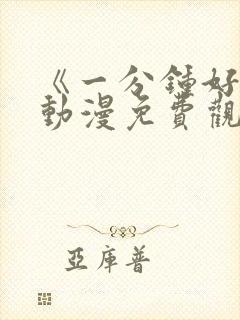 《一分鍾好
動漫免費觀
亞庫普